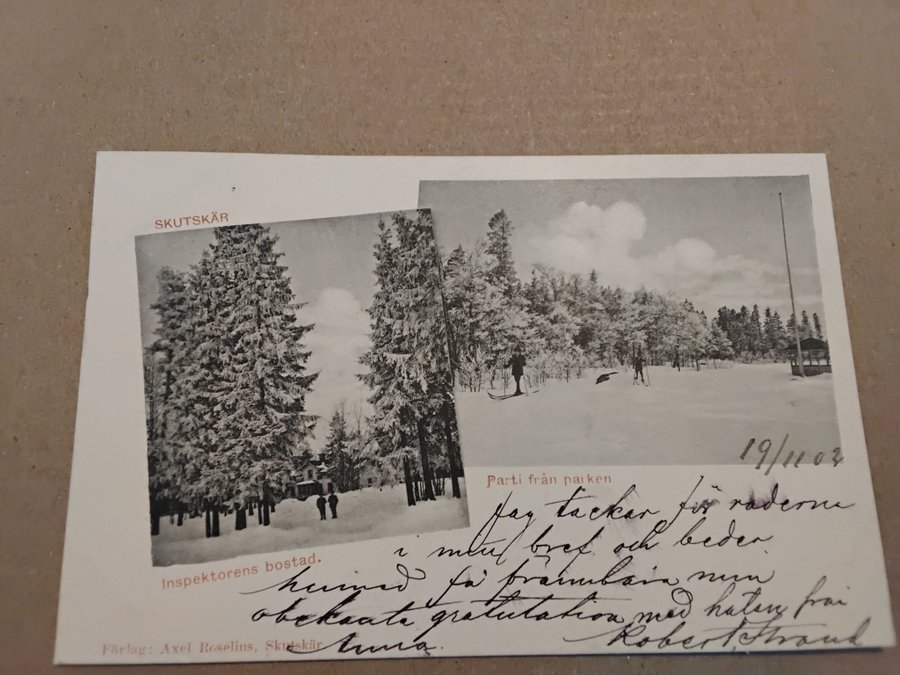 SKUTSKÄR
Inspektorens bostad.
Parti från parken.
19/11 02
Jag tackar för raderna
i bref och beder
få frambära min
gratulation med från
Anna. Robert Strand
Förlag: Axel Roselius, Skutskär